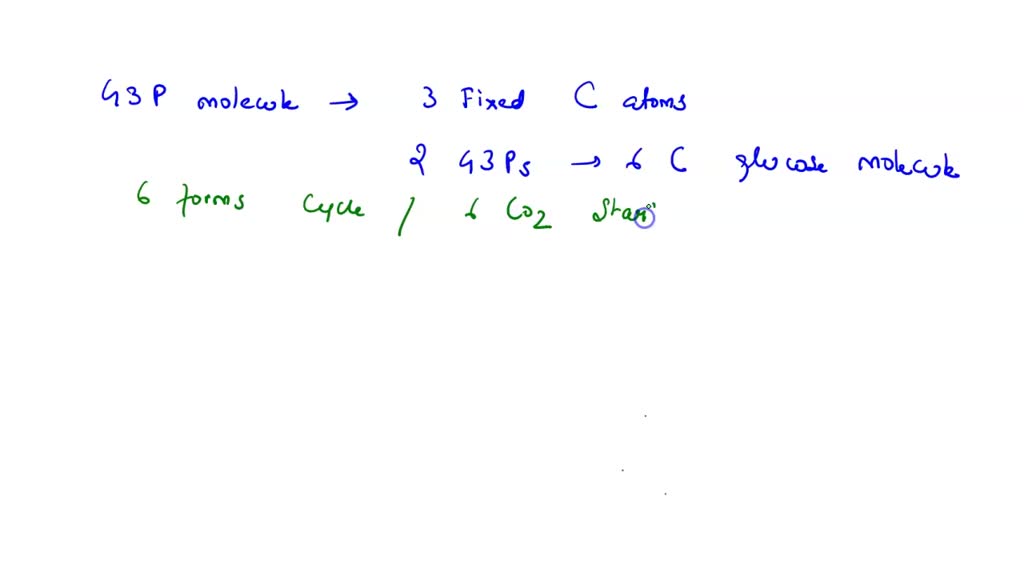 G3P molecule → 3 Fixed C atoms
2 G3Ps → 6 C glucose molecule
6 forms cycle / 6 CO2